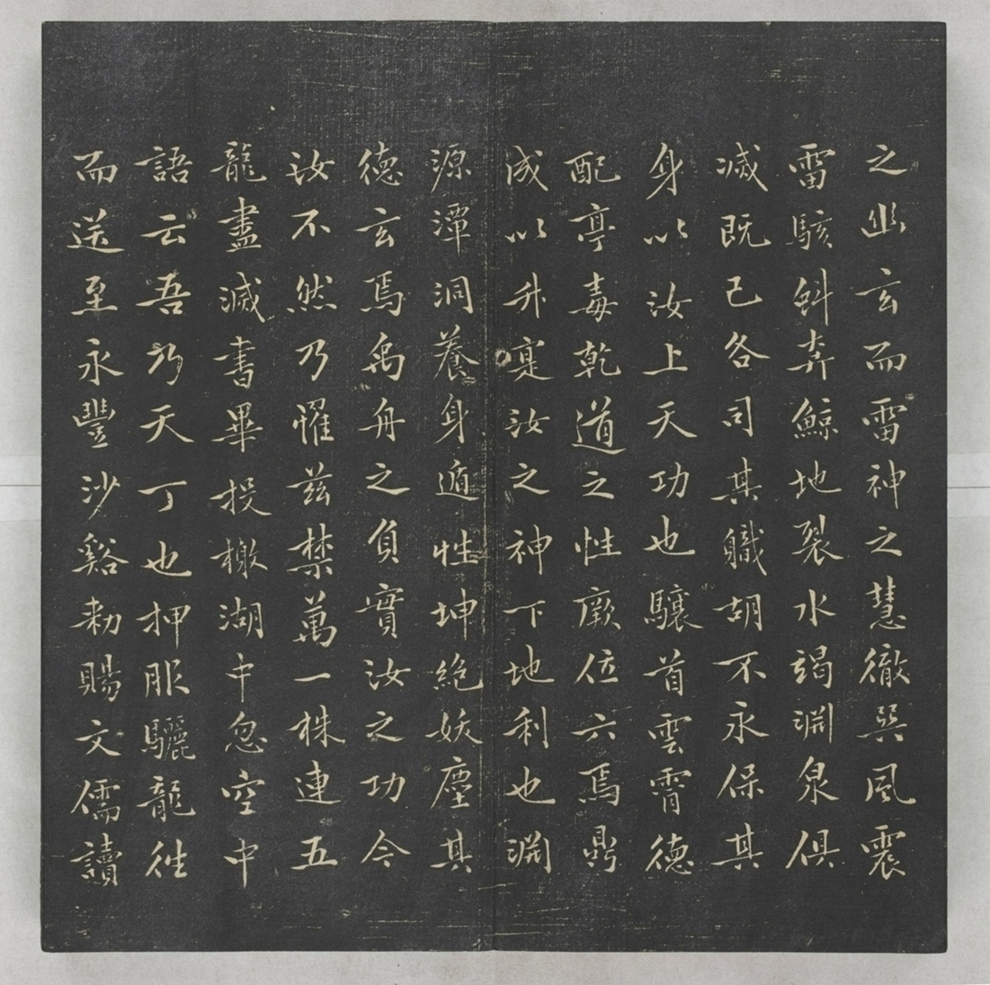 之幽玄而雷神之慧徹巽風震
雷駭斜奔鯨地裂水竭淵泉俱
滅既已各司其職胡不永保其
身以汝上天功也驤首雲霄德
配亭毒乾道之性厥位六焉鼎
成以升寔汝之神下地利也淵
源潭洞養身遁性坤絕妖塵其
德玄焉禹舟之負實汝之功今
汝不然乃懼茲禁萬一株連五
龍盡滅書畢投檄湖中忽空中
語云吾乃天丁也押服驪龍往
而送至永豐沙谿勅賜文儒讀